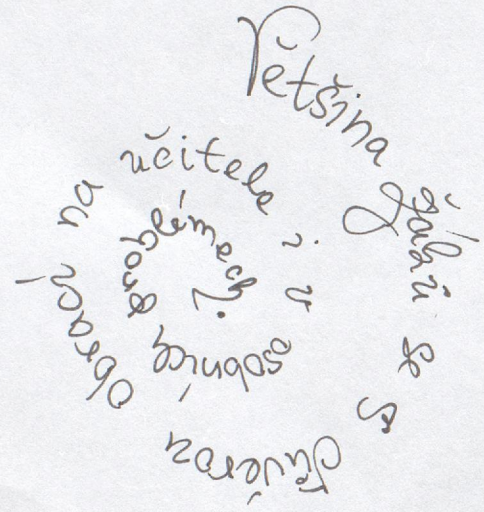 Většina žáků se s důvěrou obrací na učitele i v osobních problémech.